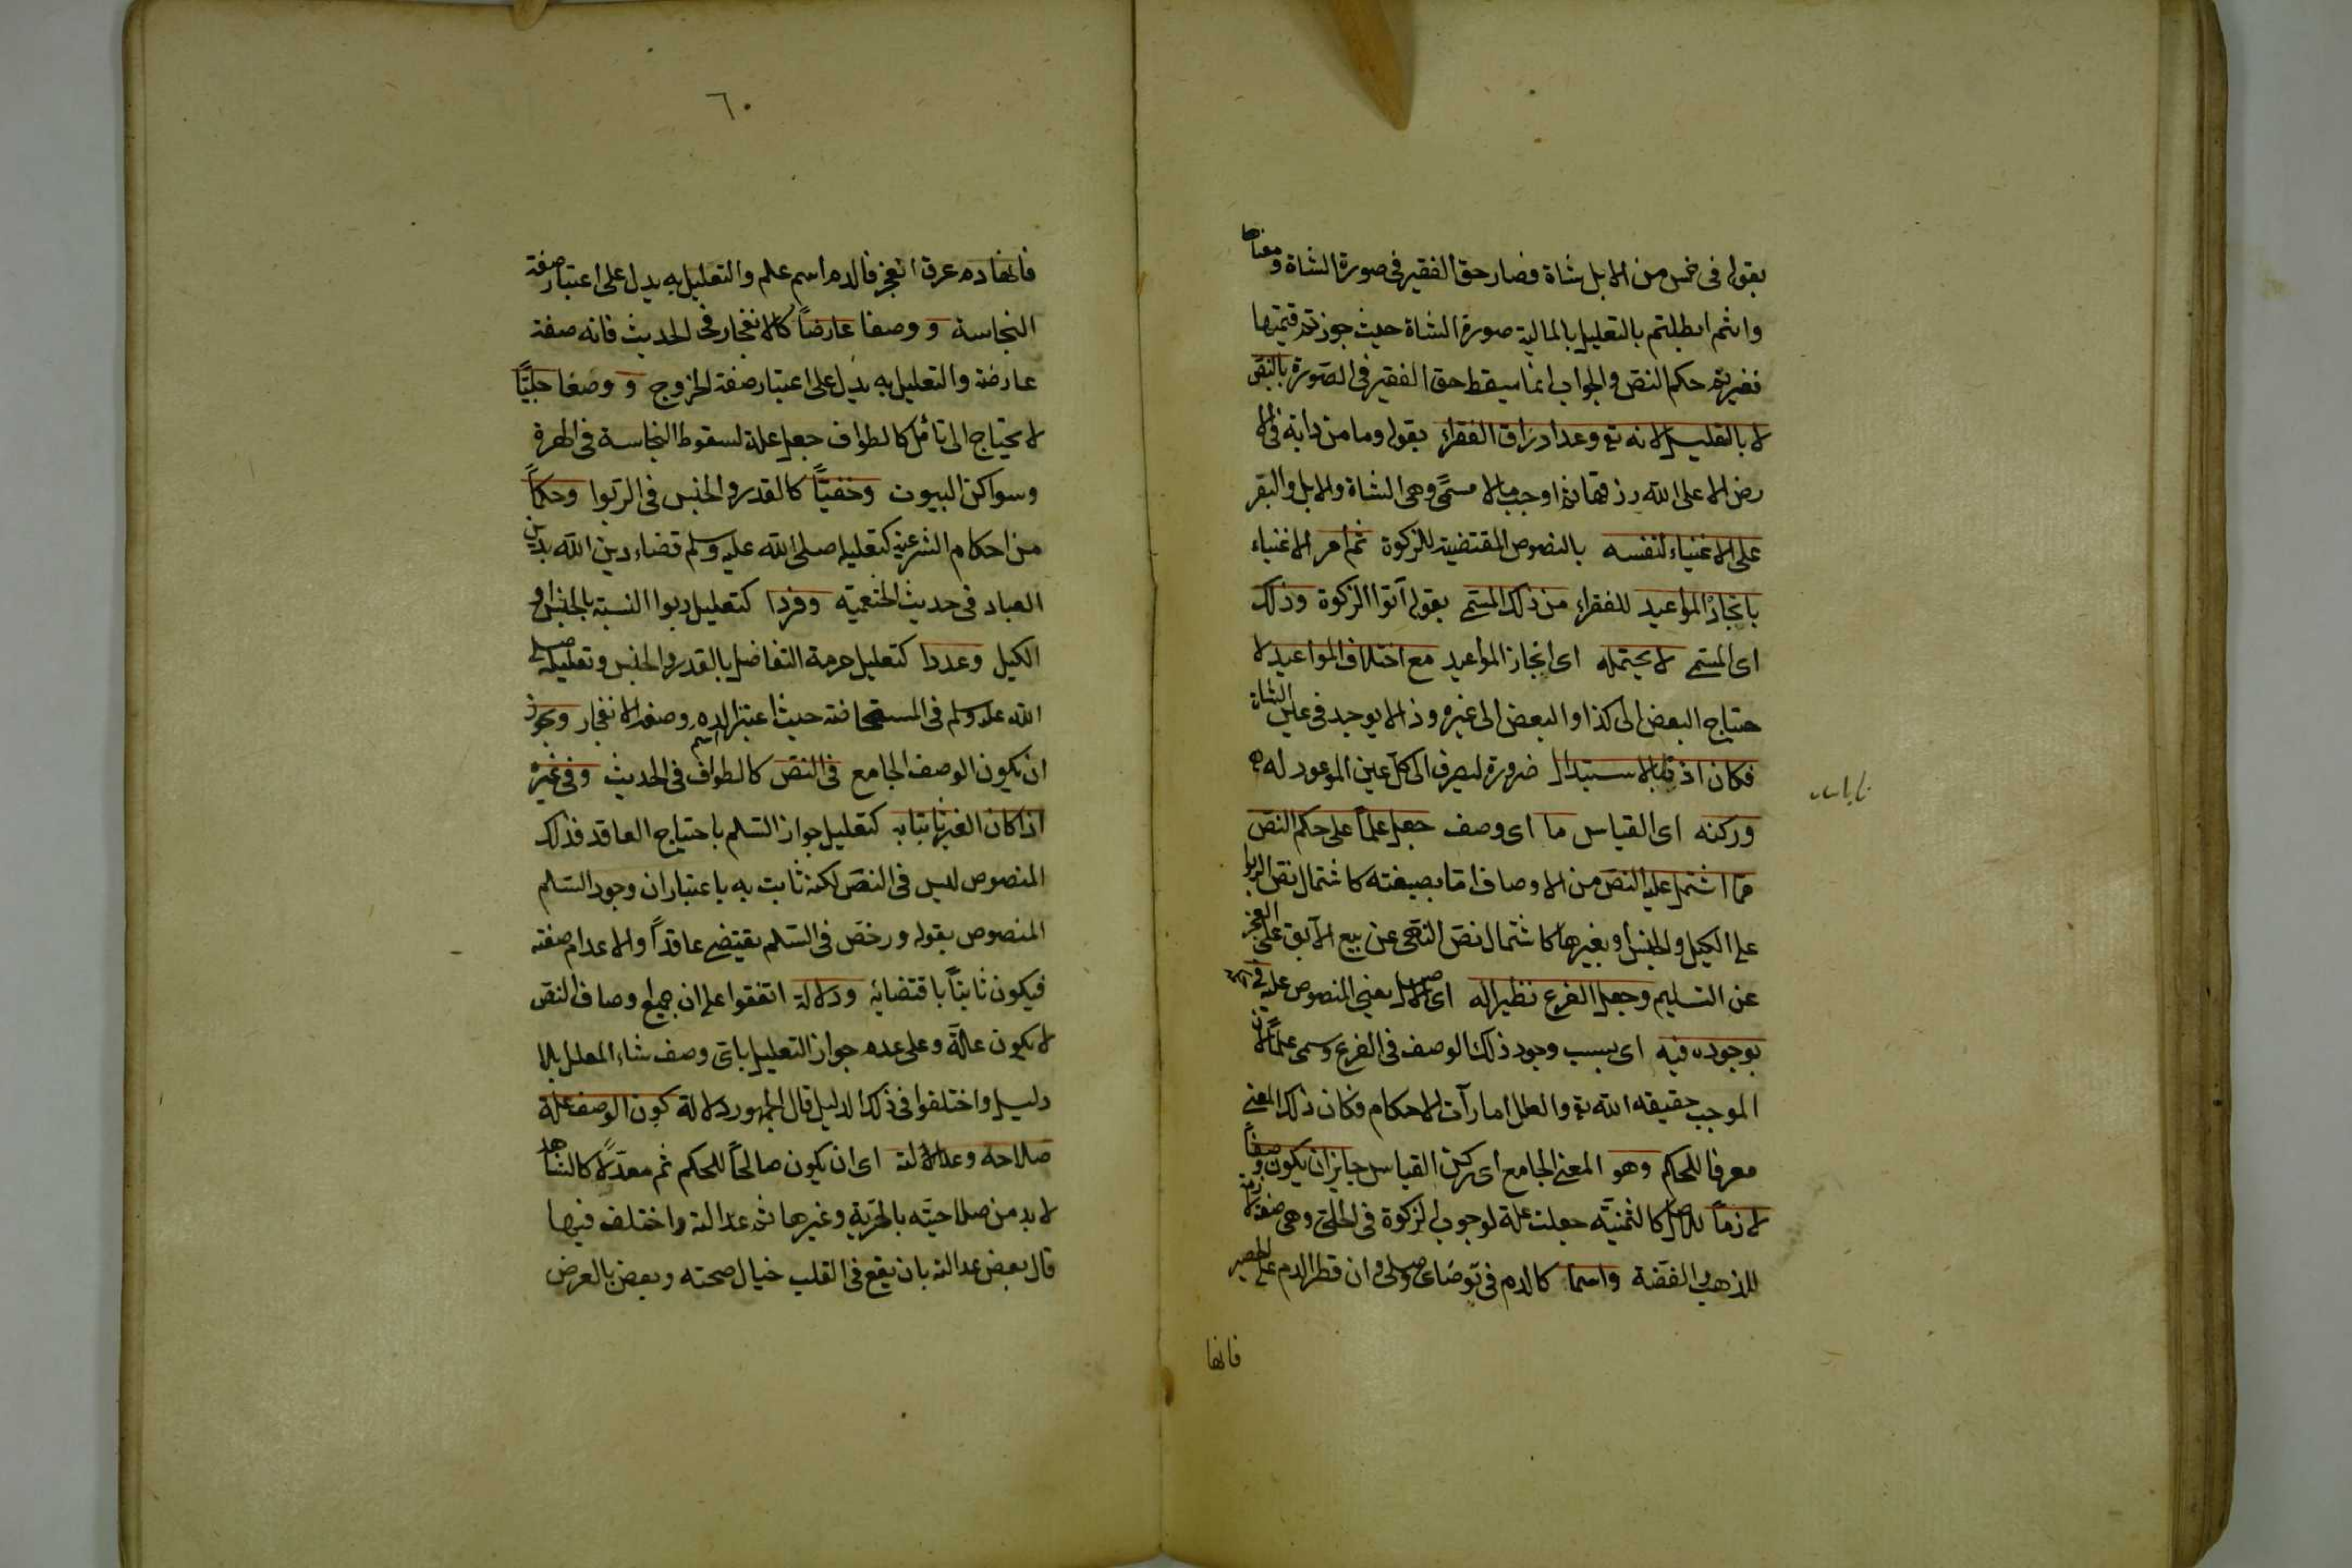 بقوله فى خمس من الابل شاة فصار حق الفقير فى صورة الشاة ومعناها
وانتم ابطلتم بالتعليل بالمالية صورة الشاة حيث جوزتم قيمتها
فغيرتم حكم النص والجواب انما سقط حق الفقير فى الصورة بالنص
لا بالتعليل لانه تع وعد ارزاق الفقراء بقوله وما من دابة فى الا
رض الا على الله رزقها ثم اوجب مالا مسمى وهى الشاة والابل والبقر
على الاغنياء لنفسه بالنصوص المقتضية للزكوة ثم امر الاغنياء
بانجاز المواعيد للفقراء من ذلك المسمى بقوله آتوا الزكوة وذلك
اى المسمى لا يحتمله اى انجاز المواعيد مع اختلاف المواعيد لا
حتياج البعض الى كذا والبعض الى غيره وذا لا يوجد فى عين الشاة
فكان اذنا بالاستبدال ضرورة ليصرف الى كل عين الموعود له
وركنه اى القياس ما اى وصف جعل علما على حكم النص
مما اشتمل عليه النص من الاوصاف اما بصيغته كاشتمال نص الربوا
على الكيل والجنس او بغيرها كاشتمال نص النهى عن بيع الآبق على العجز
عن التسليم وجعل الفرع نظيرا له اى للاصل يعنى المنصوص عليه فى
بوجوده فيه اى بسبب وجود ذلك الوصف فى الفرع وسمى علما لان
الموجب حقيقه الله تع والعلل امارات الاحكام فكان ذلك المعنى
معرفا للحكم وهو المعنى الجامع اى ركن القياس جايز ان يكون وصفا
لازما للاصل كالثمنية جعلت علة لوجوب الزكوة فى الحلى وهى صفة لازمة
للذهب والفضة واسما كالدم فى توضائ وصلى وان قطر الدم على الحصير
فانها
٦٠
فانها دم عرق انفجر فالدم اسم علم والتعليل به يدل على اعتبار صفة
النجاسة و وصفا عارضا كالانفجار فى الحديث فانه صفة
عارضة والتعليل به يدل على اعتبار صفة الخروج و وصفا جليا
لا يحتاج الى تأمل كالطواف جعل علة لسقوط النجاسة فى الهرة
وسواكن البيوت وخفيا كالقدر والجنس فى الربوا وحكما
من احكام الشرعية كتعليله صلى الله عليه وسلم قضاء دين الله بدين
العباد فى حديث الخثعمية وفردا كتعليل ربوا النسية بالجنس او
الكيل وعددا كتعليل حرمة التفاضل بالقدر والجنس وتعليله صلى
الله عليه وسلم فى المستحاضة حيث اعتبر اسم الدم وصفة الانفجار ويجوز
ان يكون الوصف الجامع فى النص كالطواف فى الحديث وفى غيره
اذا كان الغير ثابتا به كتعليل جواز السلم باحتياج العاقد فذلك
المنصوص ليس فى النص لكنه ثابت به باعتبار ان وجود السلم
المنصوص بقوله ورخص فى السلم يقتضى عاقدا والاعدام صفته
فيكون ثابتا باقتضائه ودلالة اتفقوا على ان جميع اوصاف النص
لا يكون علة وعلى عدم جواز التعليل باى وصف شاء المعلل بلا
دليل واختلفوا فى ذلك الدليل قال الجمهور دلالة كون الوصف علة
صلاحه وعدالته اى ان يكون صالحا للحكم ثم معدلا كالشاهد
لا بد من صلاحيته بالحرية وغيرها ثم عدالته واختلف فيها
قال بعض عدالته بان يقع فى القلب خيال صحته وبعض بالعرض